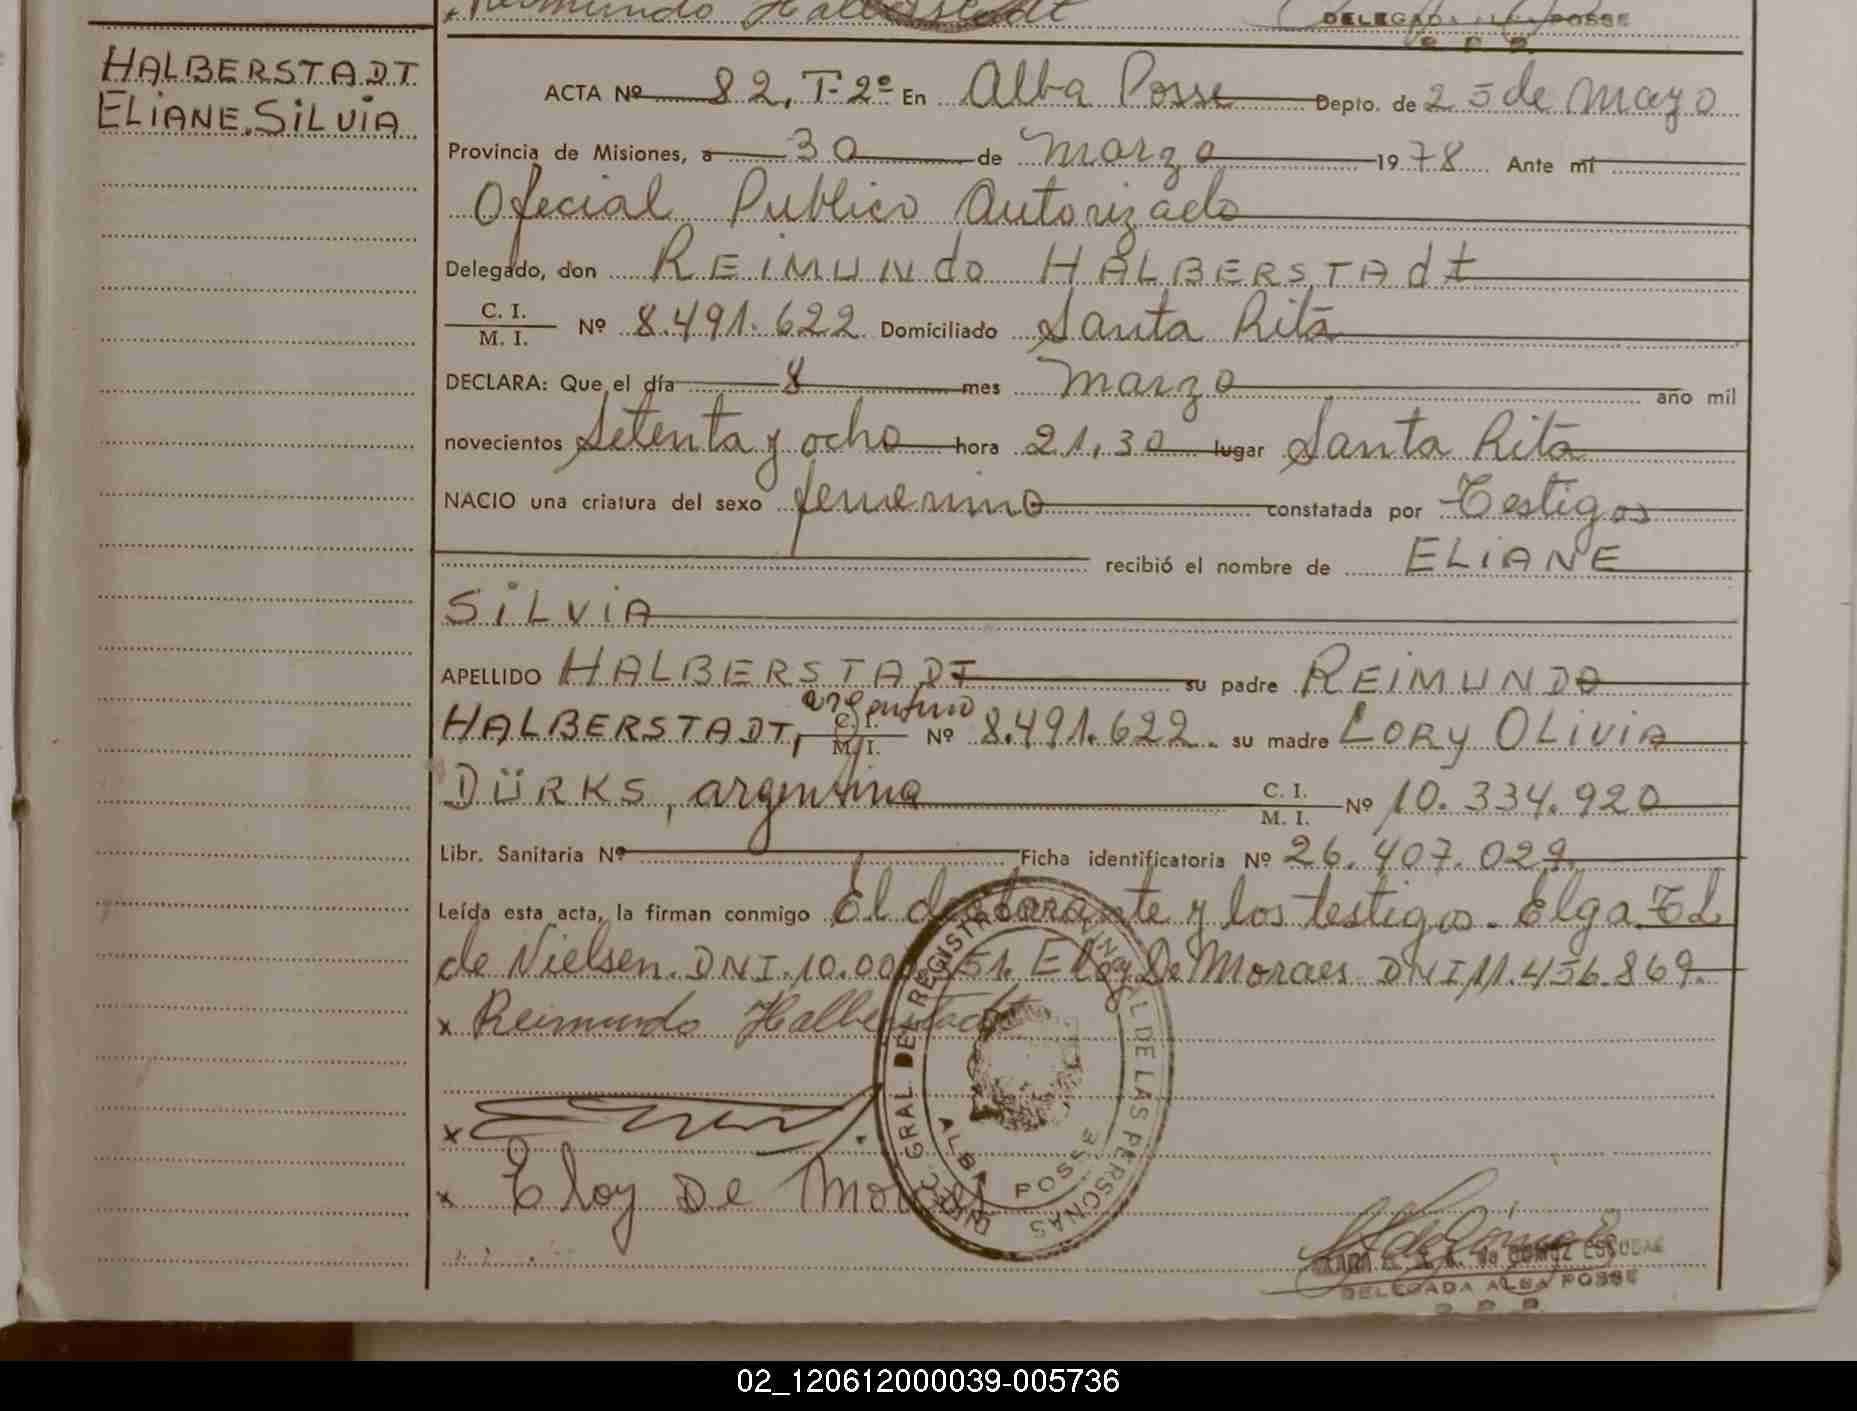 Reimundo Halberstadt
DELEGADA ALBA POSSE
R. P. P.
HALBERSTADT
ELIANE SILVIA
ACTA Nº 82, T-2º En Alba Posse Depto. de 25 de Mayo
Provincia de Misiones, a 30 de Marzo 1978 Ante mí
Oficial Publico Autorizado
Delegado, don REIMUNdo HALBERSTAdt
C. I.
M. I. Nº 8.491.622 Domiciliado Santa Rita
DECLARA: Que el día 8 mes Marzo año mil
novecientos Setenta y ocho hora 21,30 lugar Santa Rita
NACIO una criatura del sexo femenino constatada por Testigos
recibió el nombre de ELIANE
SILVIA
APELLIDO HALBERSTADT su padre REIMUNDO
HALBERSTADT, argentino C. I. M. I. Nº 8.491.622. su madre LORY OLIVIA
DÜRKS, argentina C. I. M. I. Nº 10.334.920
Libr. Sanitaria Nº Ficha identificatoria Nº 26.407.029.
Leída esta acta, la firman conmigo El declarante y los testigos. Elga T L
de Nielsen. DNI. 10.00 51. Eloy De Moraes DNI 11.456.869.
x Reimundo Halberstadt
x
x Eloy De Moraes
DIREC. GRAL DEL REGISTRO PROVINCIAL DE LAS PERSONAS
ALBA POSSE
de GOMEZ ESCOBAR
DELEGADA ALBA POSSE
R. P. P.
02_120612000039-005736